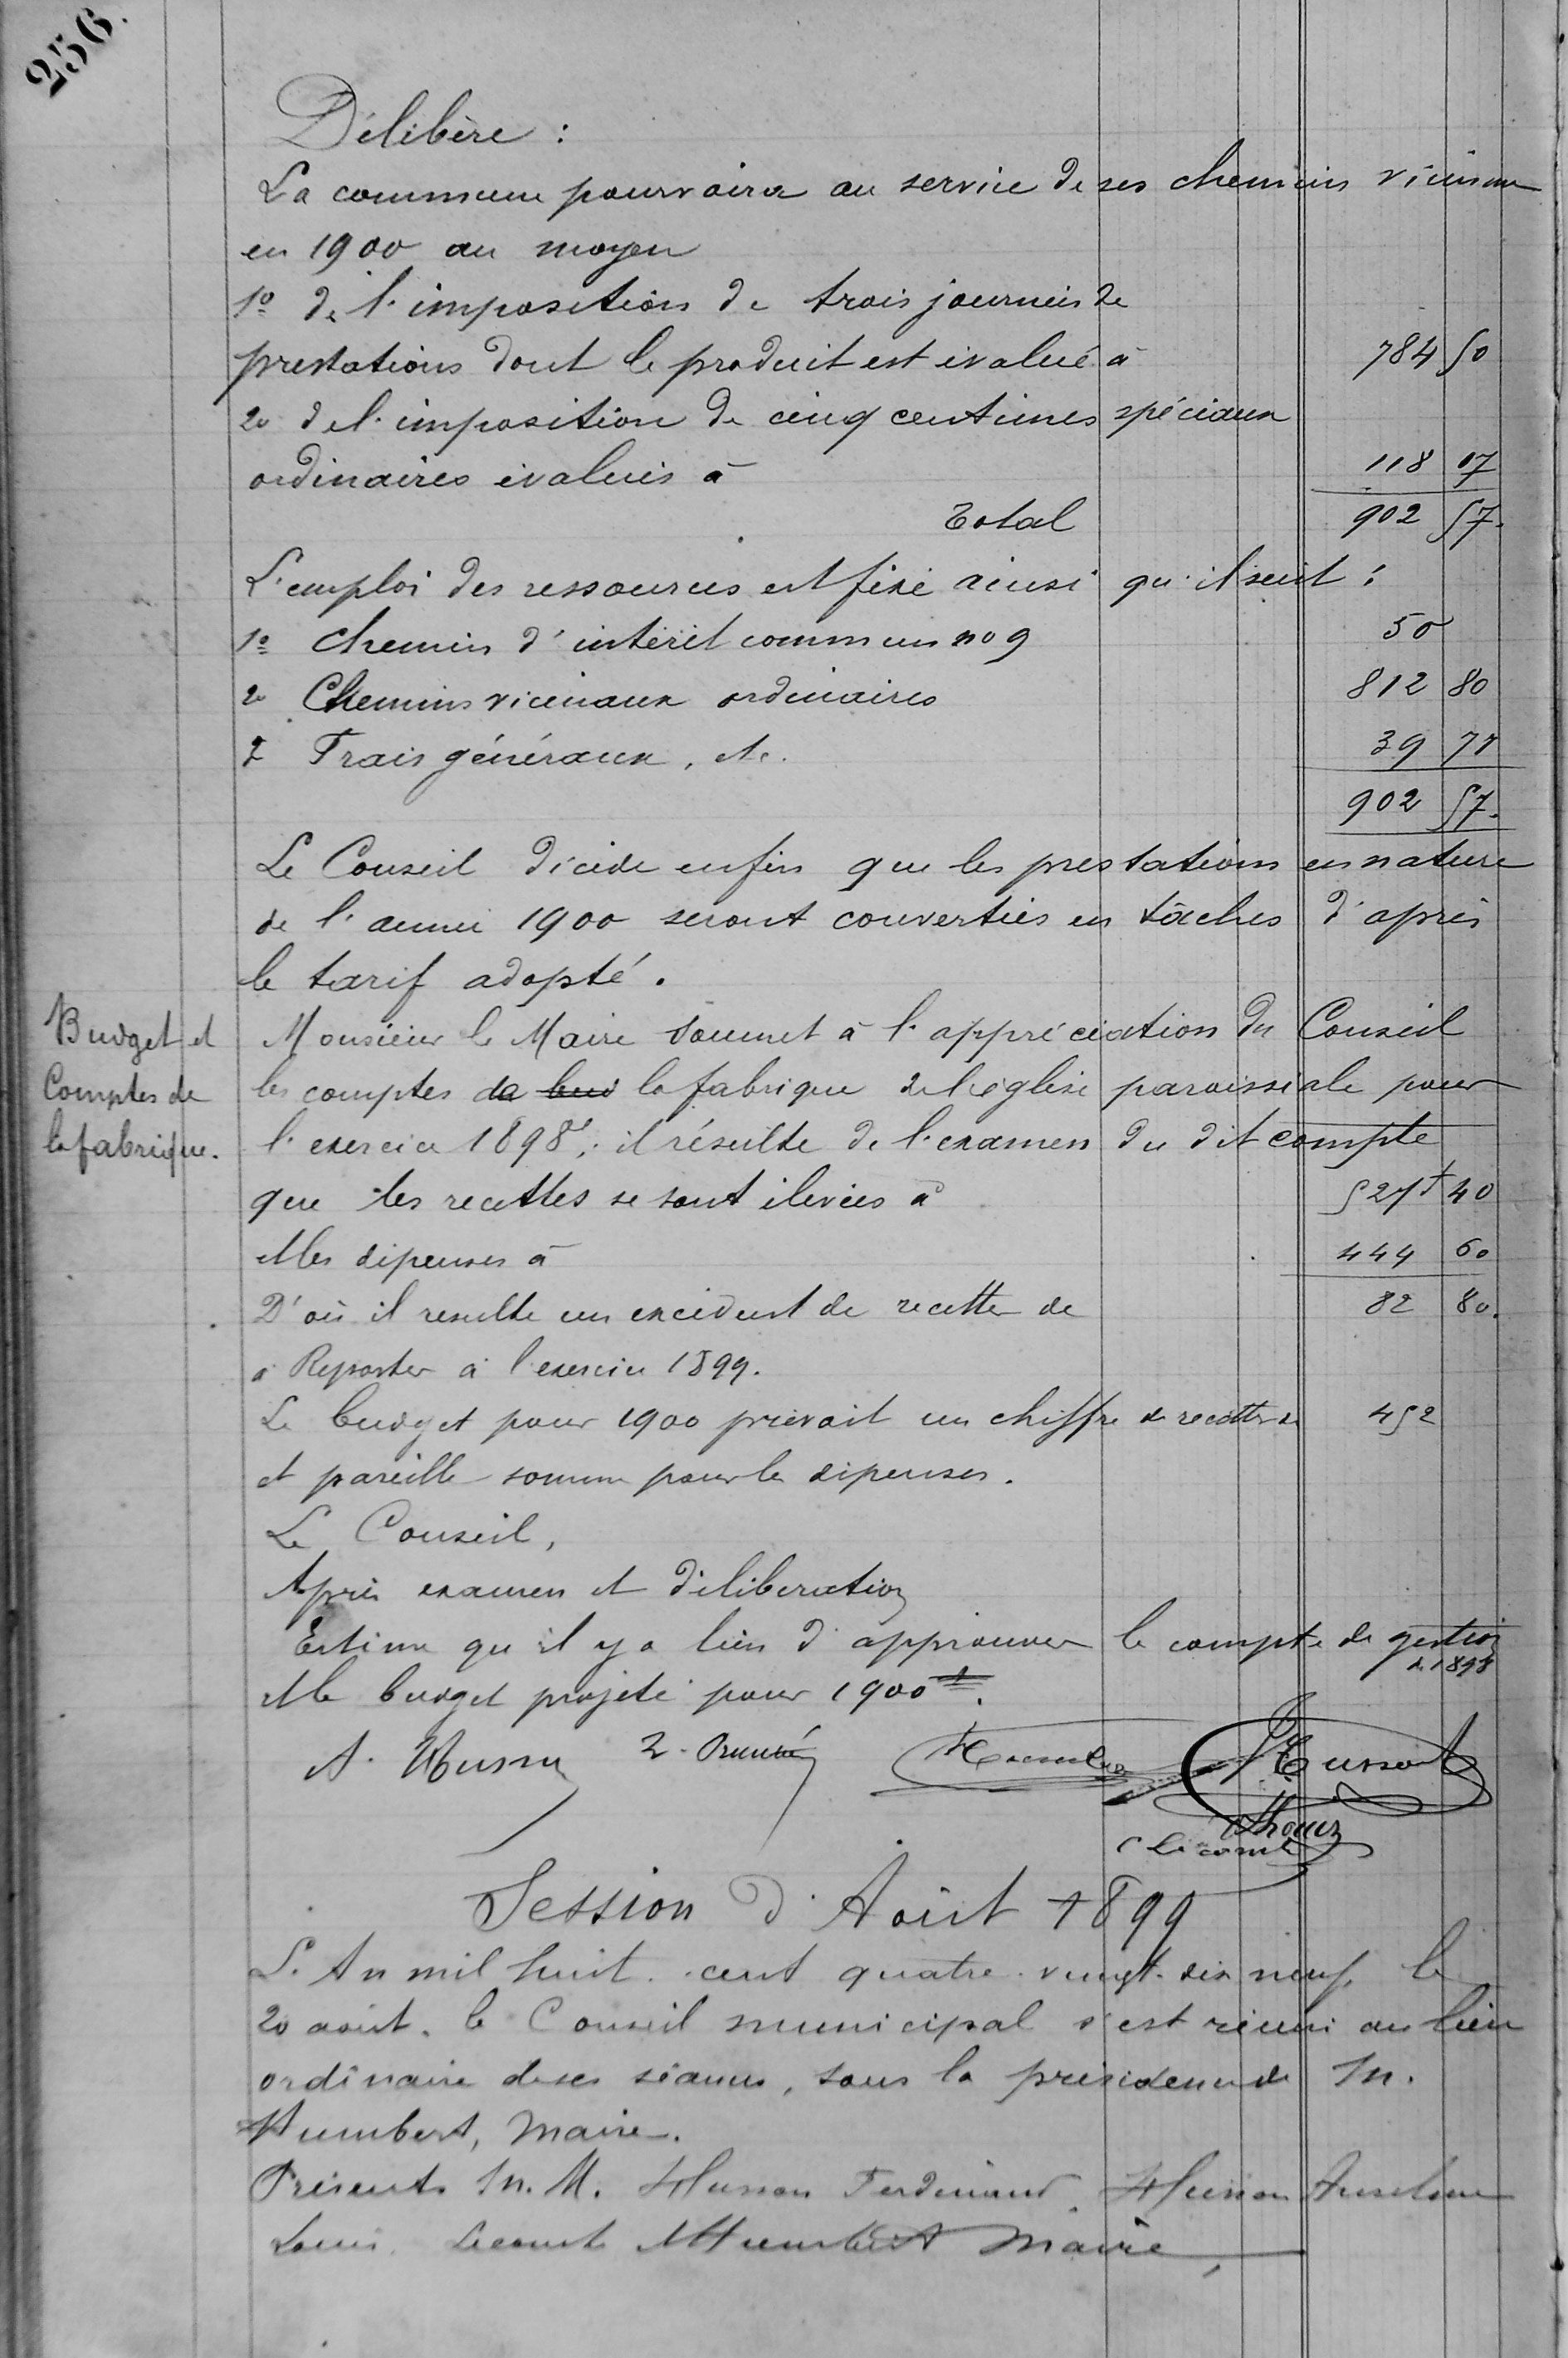 256.
Délibère :
La commune pourvoira au service de ses chemins vicinaux
en 1900 au moyen
1º de l'imposition de trois journées de
prestations dont le produit est évalué à 784 50
2º de l'imposition de cinq centimes spéciaux
ordinaires évalués à 118 07
Total 902 57.
L'emploi des ressources est fixé ainsi qu'il suit :
1º Chemin d'intérêt commun no 9 50
2º Chemins vicinaux ordinaires 812 80
3 Frais généraux, etc. 39 77
902 57.
Le Conseil décide enfin que les prestations en nature
de l'année 1900 seront converties en tâches d'après
le tarif adopté.
Budget et
Comptes de
la fabrique.
Monsieur le Maire soumet à l'appréciation du Conseil
les comptes de bud la fabrique de l'église paroissiale pour
l'exercice 1898 ; il résulte de l'examen du dit compte
que les recettes se sont élevées à 527f 40
et les dépenses à 444 60
D'où il resulte un excédent de recette de 82 80.
à Reporter à l'exercice 1899.
Le budget pour 1900 prévoit un chiffre de recettes de 452
et pareille somme pour les dépenses.
Le Conseil,
Après examen et délibération
Estime qu'il y a lieu d'approuver le compte de gestion
de 1898
et le budget projeté pour 1900.
A. Husson
Thouin
C Lecomte
Session d'Août 1899
L'An mil huit cent quatre vingt dix neuf, le
20 août, le Conseil municipal s'est réuni au lieu
ordinaire de ses séances, sous la présidence de M.
Humbert, Maire.
Présents M. M. Husson Ferdinand, Husson Anselme
Louis, Lecomte et Humbert Maire,